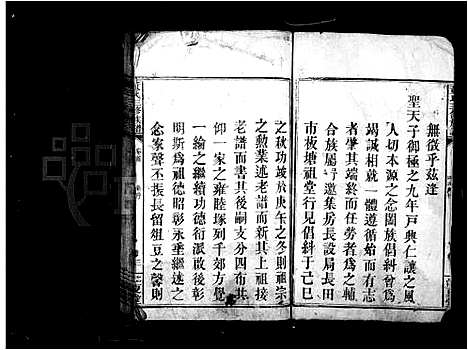 無徵乎茲逢
聖天子御極之九年戶興仁讓之風
人切本源之念闔族倡斜曾爲
竭誠相就一體遵循始而有志
者肇其端終而任勞者爲之輔
合族屬弓邀集房長設局長田
市板塘祖堂行見倡斜于己巳
之秋功竣於庚午之冬則祖宗
之勲業述老譜而其上祖接
老譜而書其後嗣支分四布其
仰一家之雍睦塚到千郊方覺
一綸之繼續功德衍派啟後彰
明斯爲祖德昭彰永垂繼述之
念家聲丕振長留俎豆之馨則